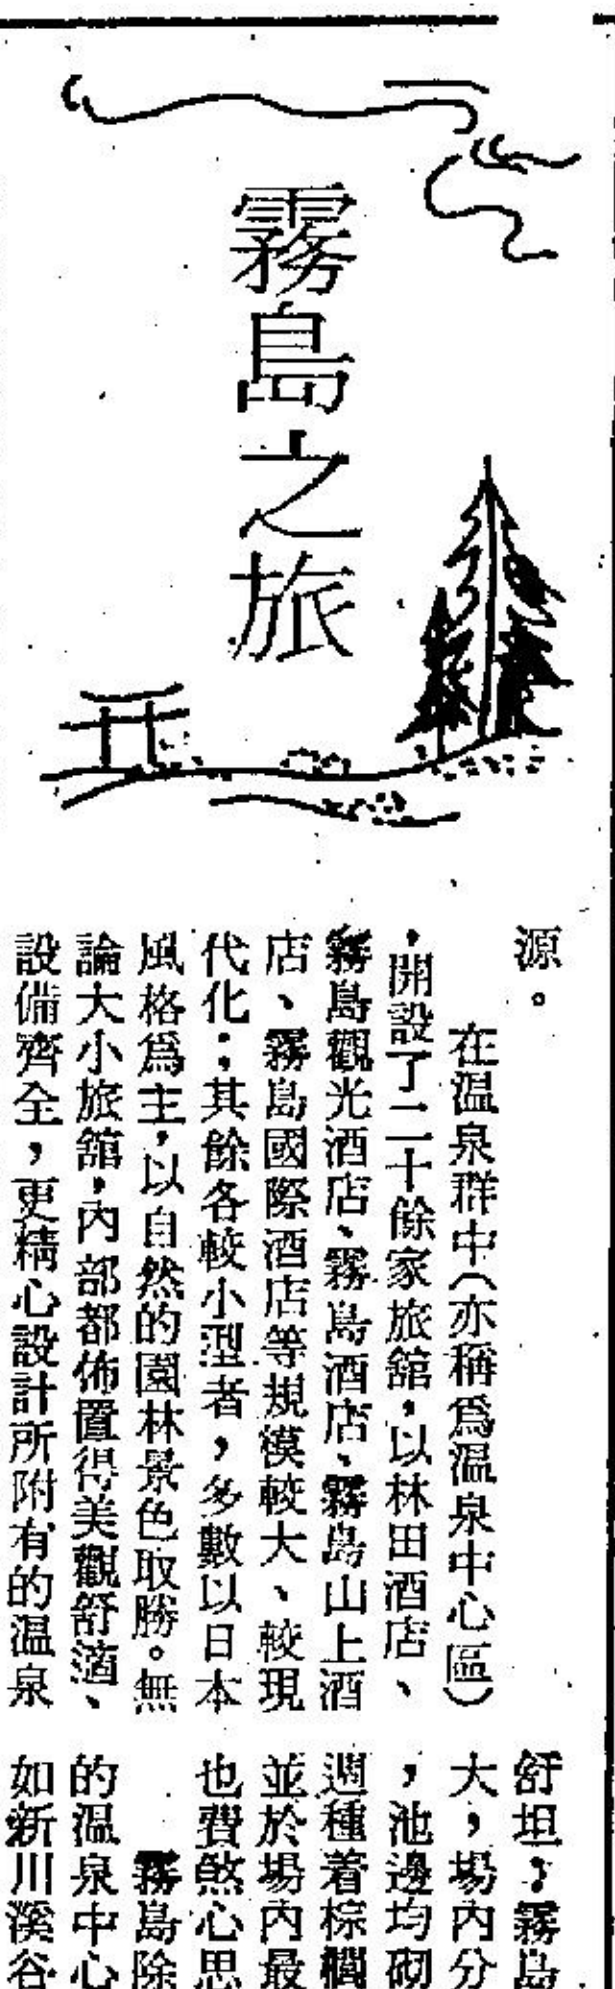 霧島之旅
源。
在温泉群中(亦稱爲温泉中心區)
，開設了二十餘家旅舘，以林田酒店、
霧島觀光酒店、霧島酒店、霧島山上酒
店、霧島國際酒店等規模較大、較現
代化；其餘各較小型者，多數以日本
風格爲主，以自然的園林景色取勝。無
論大小旅舘，內部都佈置得美觀舒適、
設備齊全，更精心設計所附有的温泉
舒坦；霧島
大，場內分
，池邊均砌
週種着棕櫚
並於場內最
也費煞心思
霧島除
的温泉中心
如新川溪谷